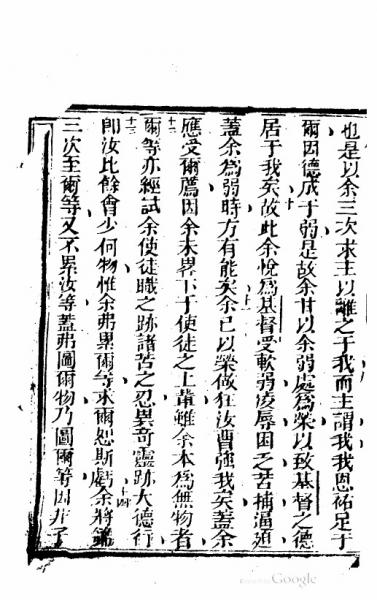 也是以余三次求主以離之于我而主謂我我恩祐足于
爾因德成于弱是故余甘以余弱處爲榮以致基督之德
居于我矣故此余悅爲基督受軟弱凌辱困乏苦捕逼迫
十
蓋余爲弱時方有能矣余已以榮做狂汝曹強我矣蓋余
十一
應受爾薦因余未畧下于使徒之上輩雖余本爲無物者
十二
爾等亦經試余使徒職之跡諸苦之忍異奇靈跡大德行
十三
即汝比餘會少何物惟余弗累爾等本爾恕斯虧余將
十四
三次至爾等又不累汝等蓋弗圖爾物乃圖爾等因非子
Google